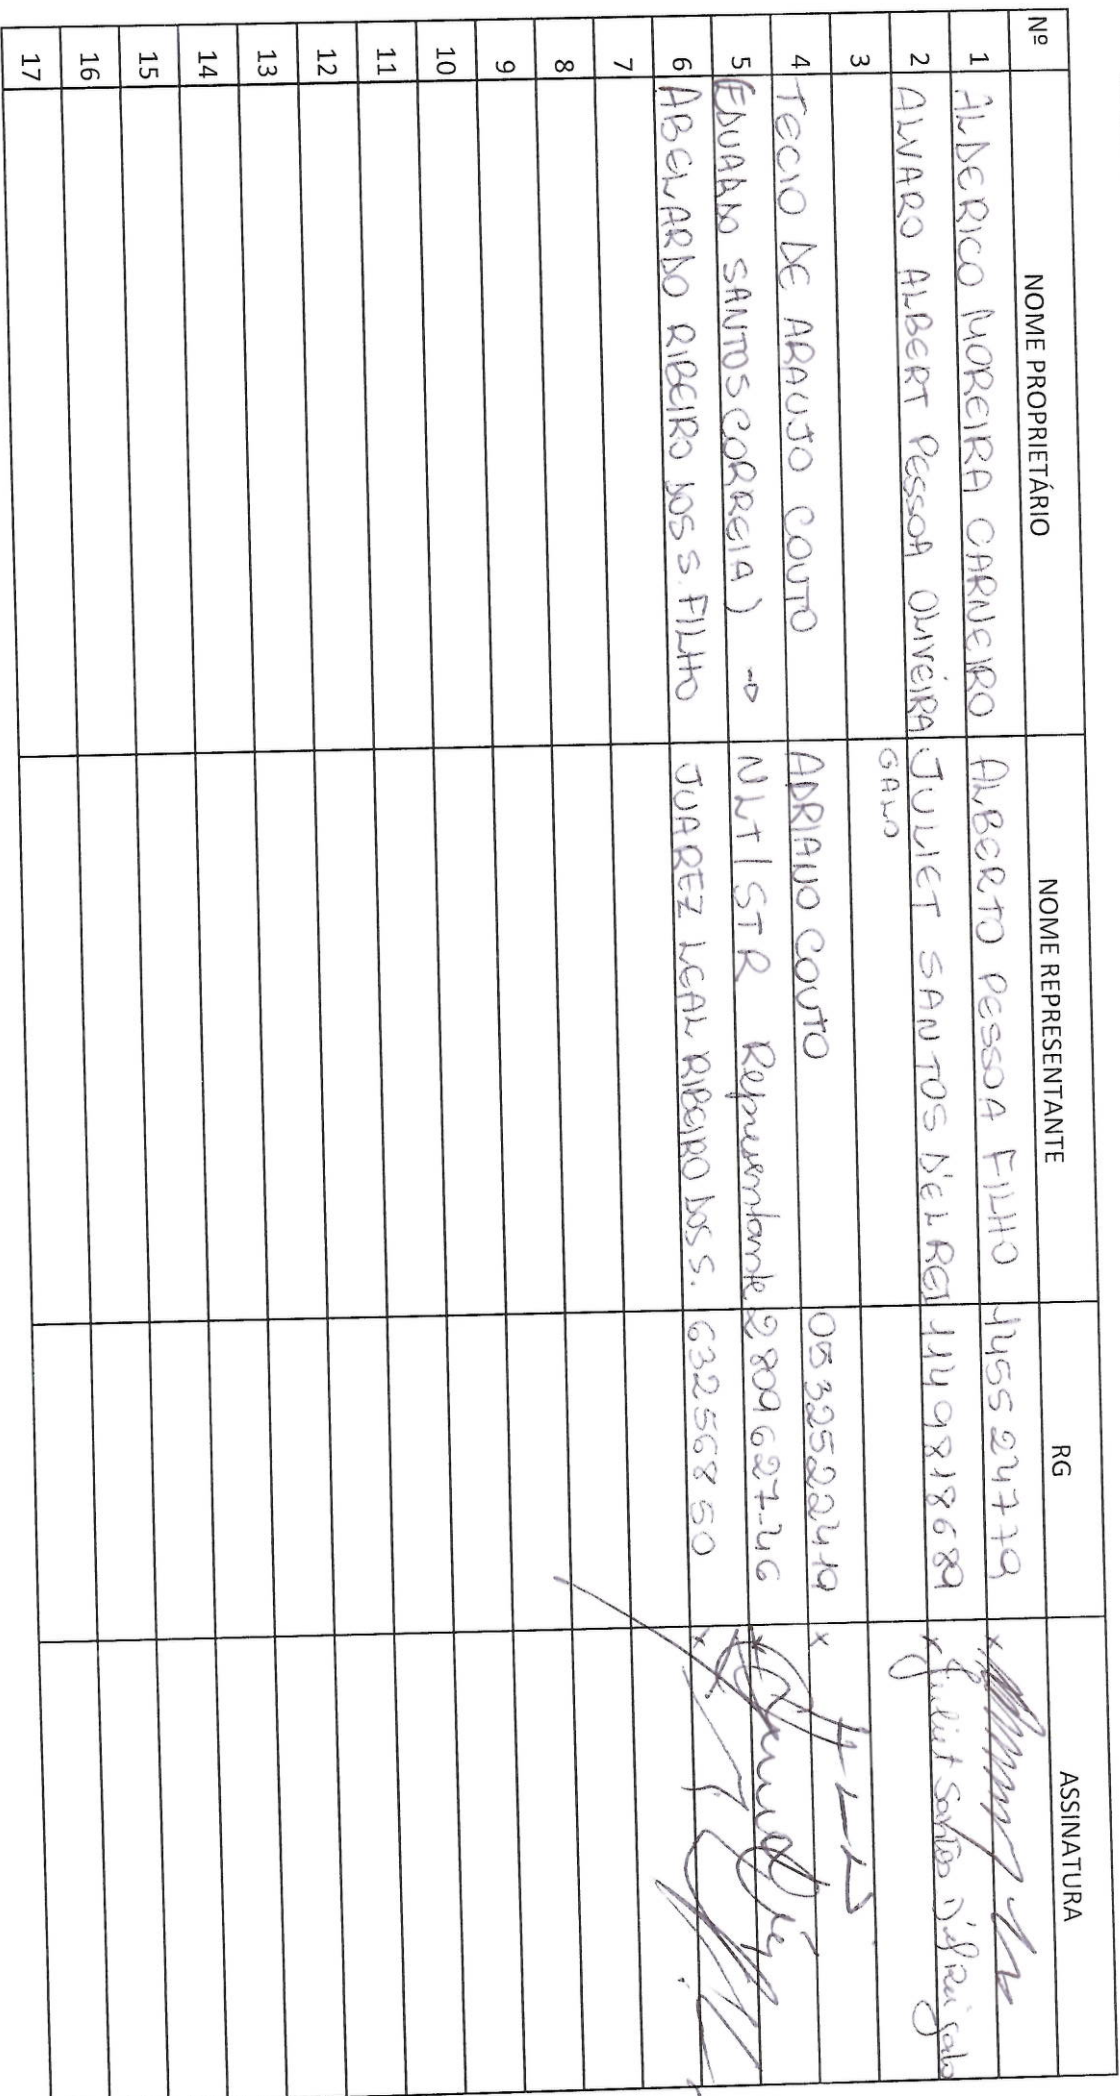 Nº NOME PROPRIETÁRIO NOME REPRESENTANTE RG ASSINATURA
1 ALDERICO MOREIRA CARNEIRO ALBERTO PESSOA FILHO 1455224779 x
2 ALVARO ALBERT PESSOA OLIVEIRA JULIET SANTOS D'EL REI 1149818689 x Juliet Santos D'el Rei Galo
3 GALO
4 TECIO DE ARAUJO COUTO ADRIANO COUTO 05325522419 x
5 (EDUARDO SANTOS CORREIA) → NLT/STR Representante 2809627-46 x
6 ABELARDO RIBEIRO DOS S. FILHO JUAREZ LEAL RIBEIRO DOS S. 632568 50 x
7
8
9
10
11
12
13
14
15
16
17